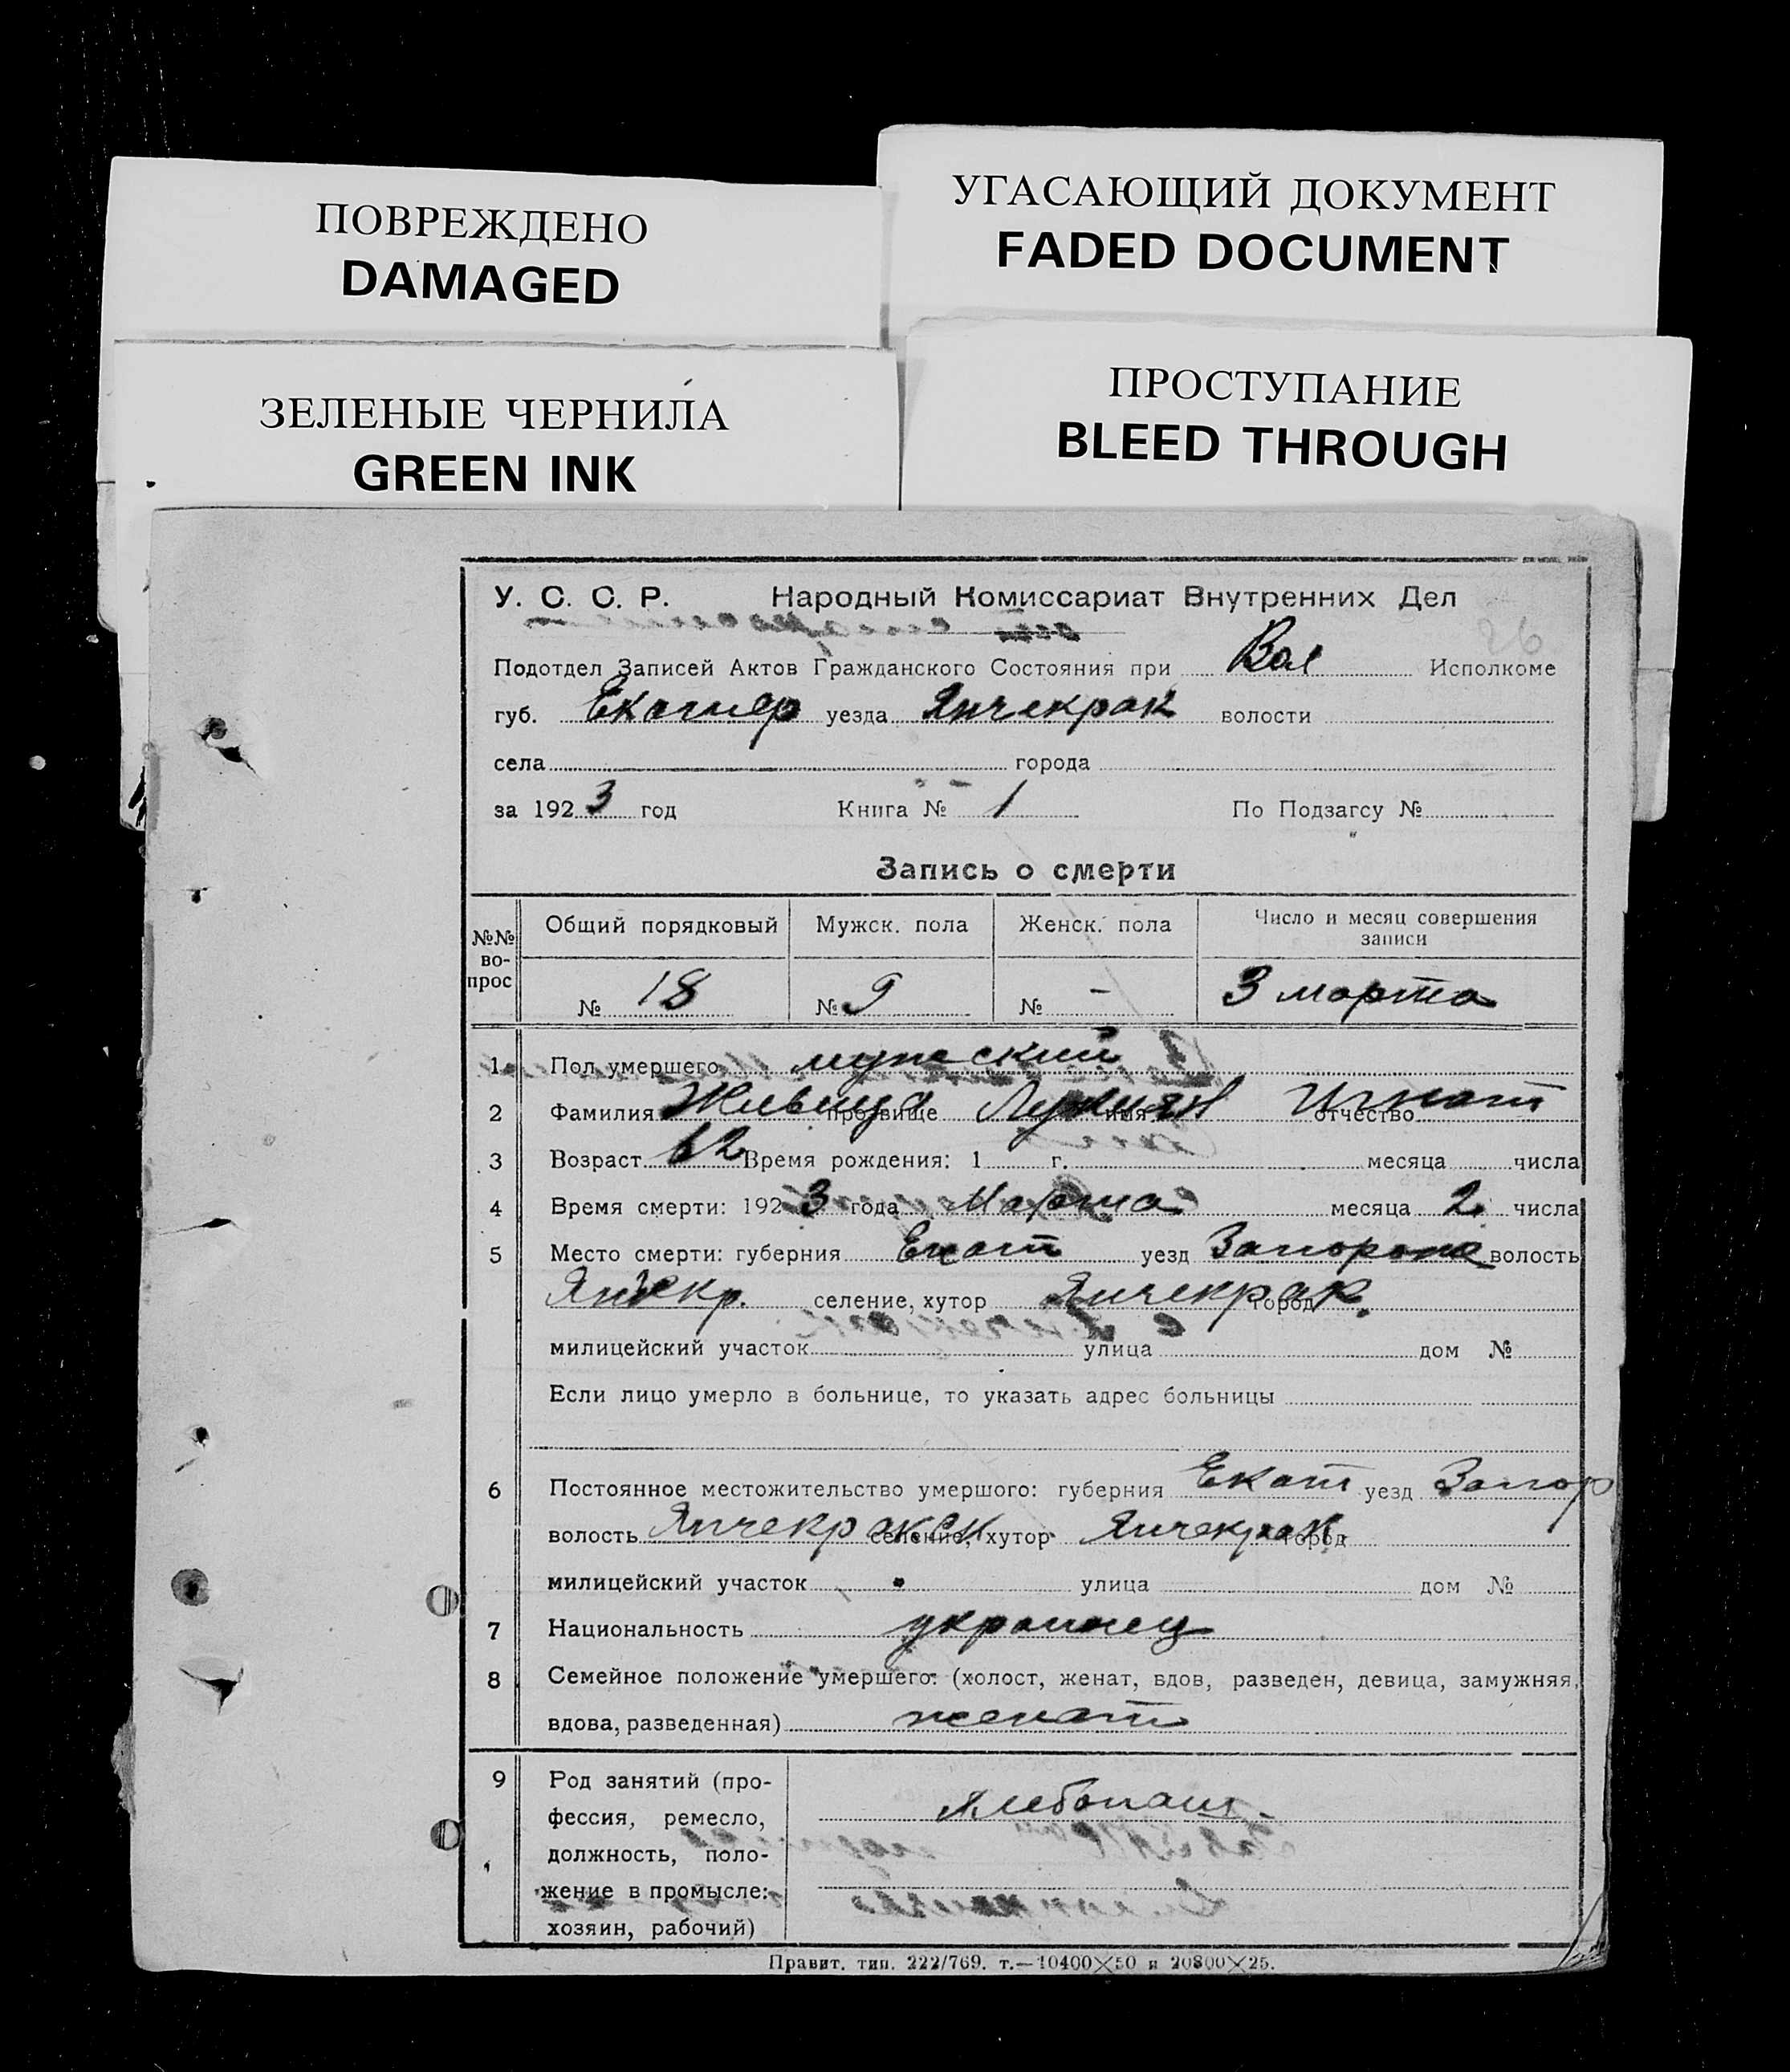 ПОВРЕЖДЕНО
DAMAGED
УГАСАЮЩИЙ ДОКУМЕНТ
FADED DOCUMENT
ЗЕЛЕНЫЕ ЧЕРНИЛА
GREEN INK
ПРОСТУПАНИЕ
BLEED THROUGH
У. С. С. Р. Народный Комиссариат Внутренних Дел
26
Подотдел Записей Актов Гражданского Состояния при Вол Исполкоме
губ. Екатер уезда Янчекрак волости
села города
за 1923 год Книга № 1 По Подзагсу №
Запись о смерти
№№ вопрос Общий порядковый Мужск. пола Женск. пола Число и месяц совершения записи
№ 18 № 9 № - 3 марта
1 Пол умершего мужский
2 Фамилия Живица прозвище имя Лукиян отчество Игнат
3 Возраст 62 Время рождения: 1 г. месяца числа
4 Время смерти: 1923 года Марта месяца 2 числа
5 Место смерти: губерния Екат уезд Запорож волость
Янчекр. селение, хутор Янчекрак. город
милицейский участок улица дом №
Если лицо умерло в больнице, то указать адрес больницы
6 Постоянное местожительство умершего: губерния Екат уезд Запор
волость Янчекракск селение, хутор Янчекрак город
милицейский участок улица дом №
7 Национальность украинец
8 Семейное положение умершего: (холост, женат, вдов, разведен, девица, замужняя,
вдова, разведенная) женат
9 Род занятий (про-
фессия, ремесло, хлебопаш.
должность, поло-
жение в промысле:
хозяин, рабочий)
Правит. тип. 222/769. т.—10400×50 и 20800×25.